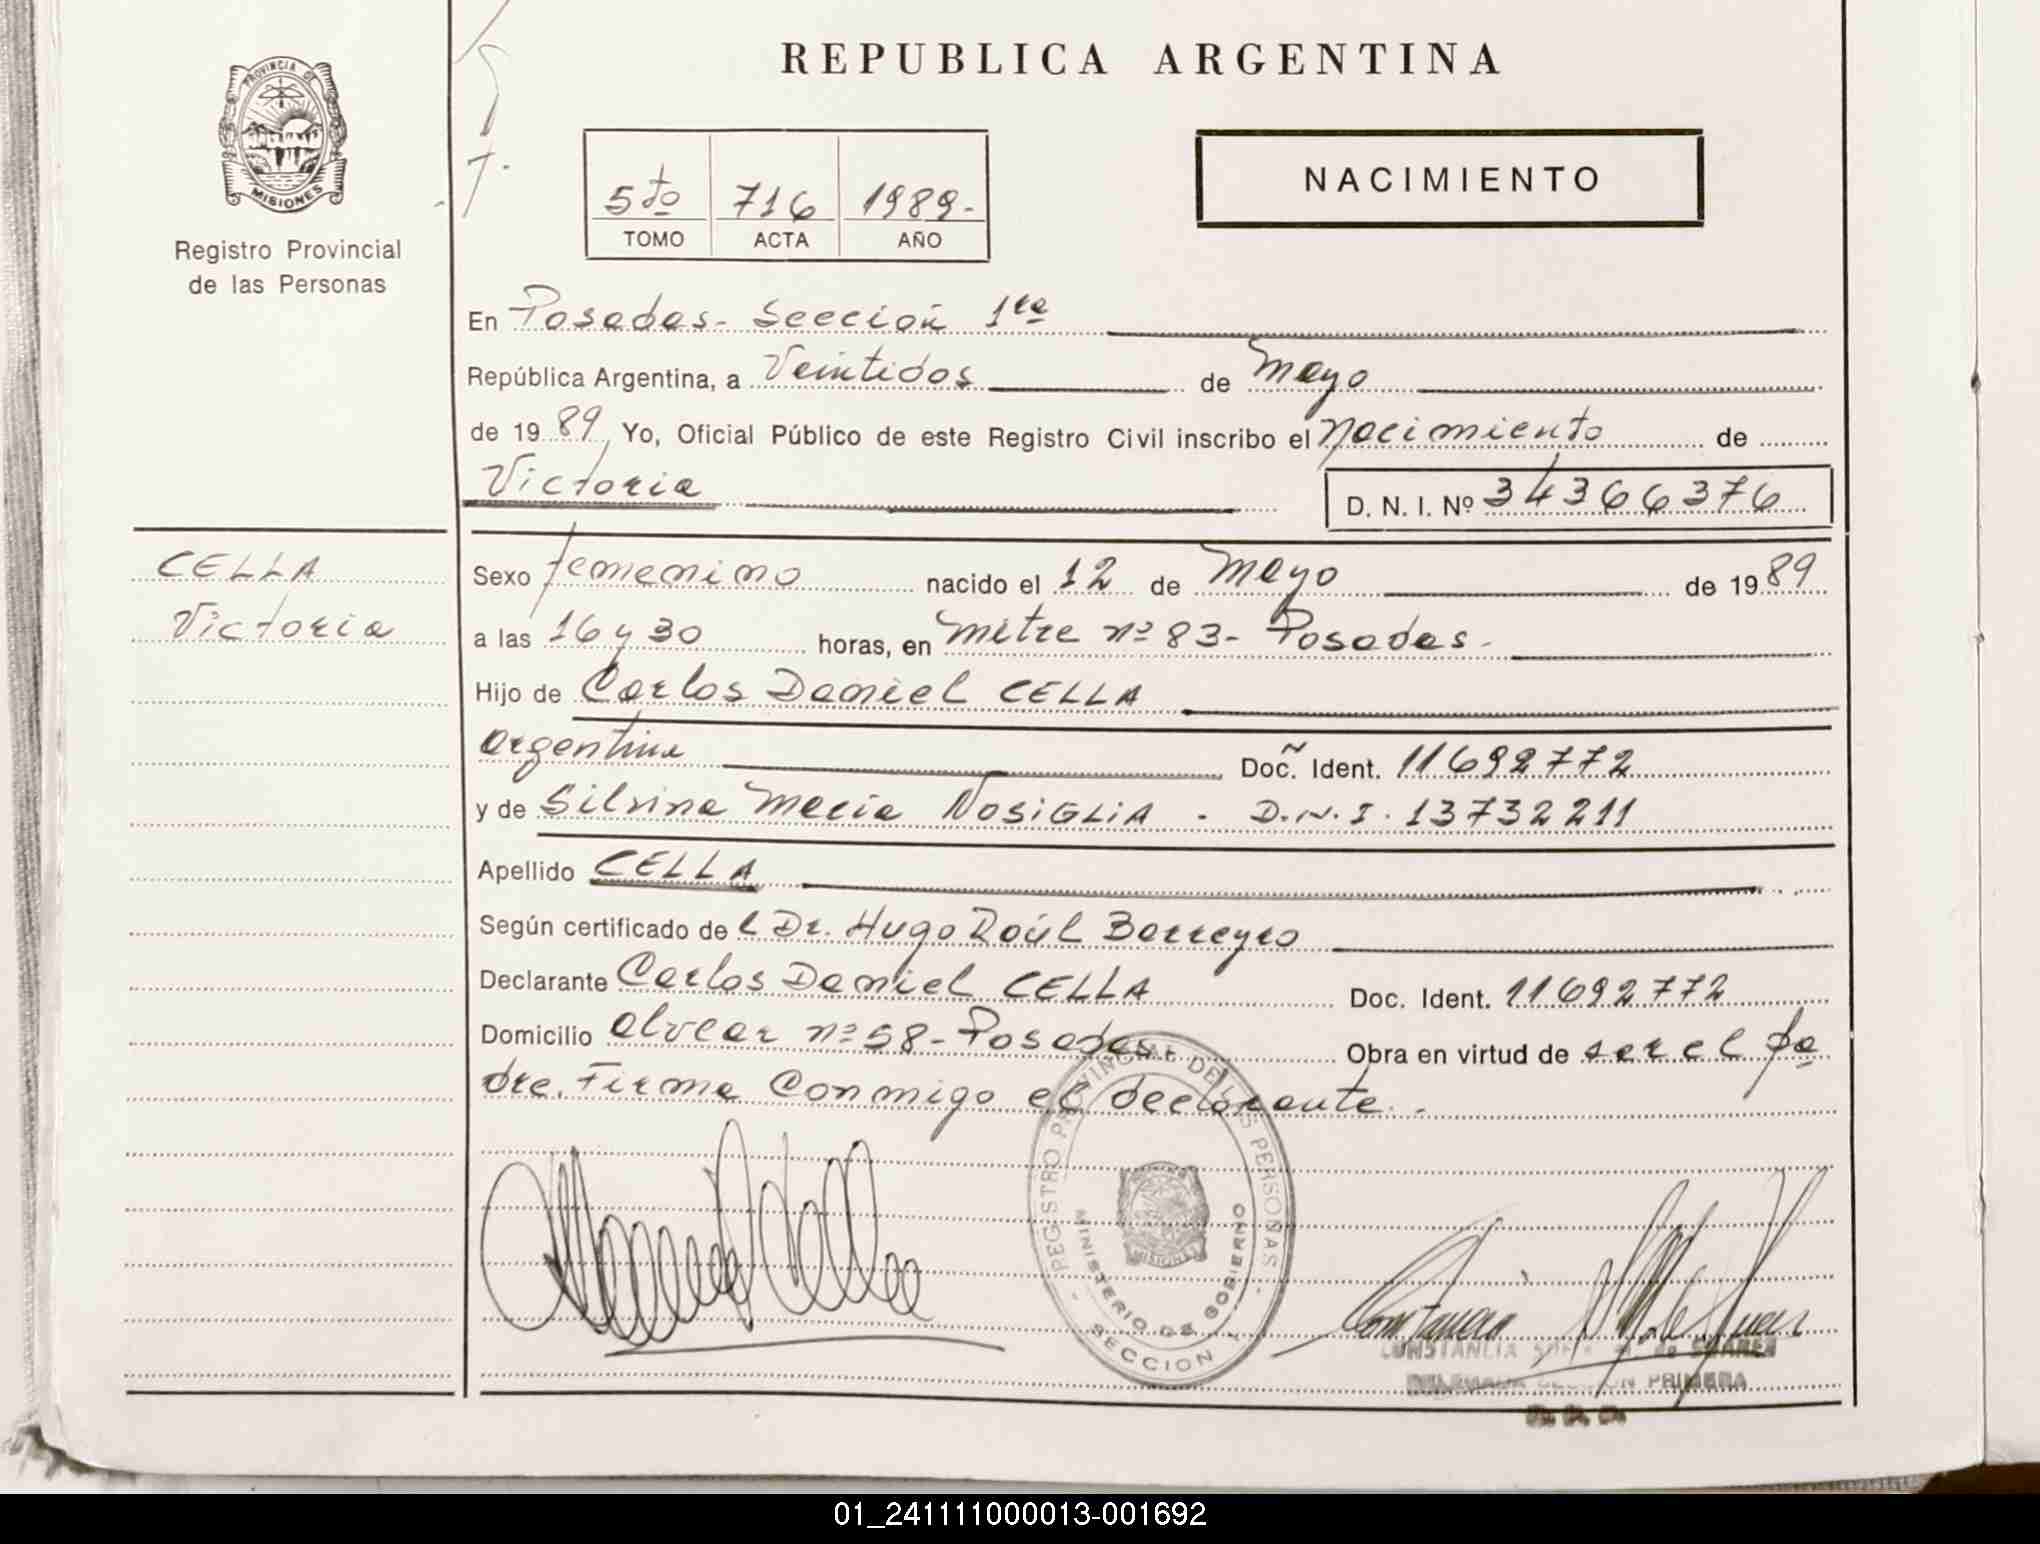 REPUBLICA ARGENTINA
PROVINCIA DE
MISIONES
Registro Provincial
de las Personas
5to 716 1989.-
TOMO ACTA AÑO
NACIMIENTO
En Posadas - Sección 1ra
República Argentina, a Veintidos de Mayo
de 1989, Yo, Oficial Público de este Registro Civil inscribo el Nacimiento de
Victoria D. N. I. Nº 34366376
CELLA
Victoria
Sexo femenino nacido el 12 de Mayo de 1989
a las 16 y 30 horas, en Mitre nº 83 - Posadas -
Hijo de Carlos Daniel CELLA
argentina Doc. Ident. 11692772
y de Silvina María NOSIGLIA - D.N.I. 13732211
Apellido CELLA
Según certificado de l Dr. Hugo Raúl Barreyro
Declarante Carlos Daniel CELLA Doc. Ident. 11692772
Domicilio Alvear nº 58 - Posadas. Obra en virtud de ser el pa
dre. Firma Conmigo el declarante.
REGISTRO PROVINCIAL DE LAS PERSONAS
MINISTERIO DE GOBIERNO
MISIONES
SECCION
CONSTANCIA de SUAREZ
DELEGADA SECCION PRIMERA
01_241111000013-001692